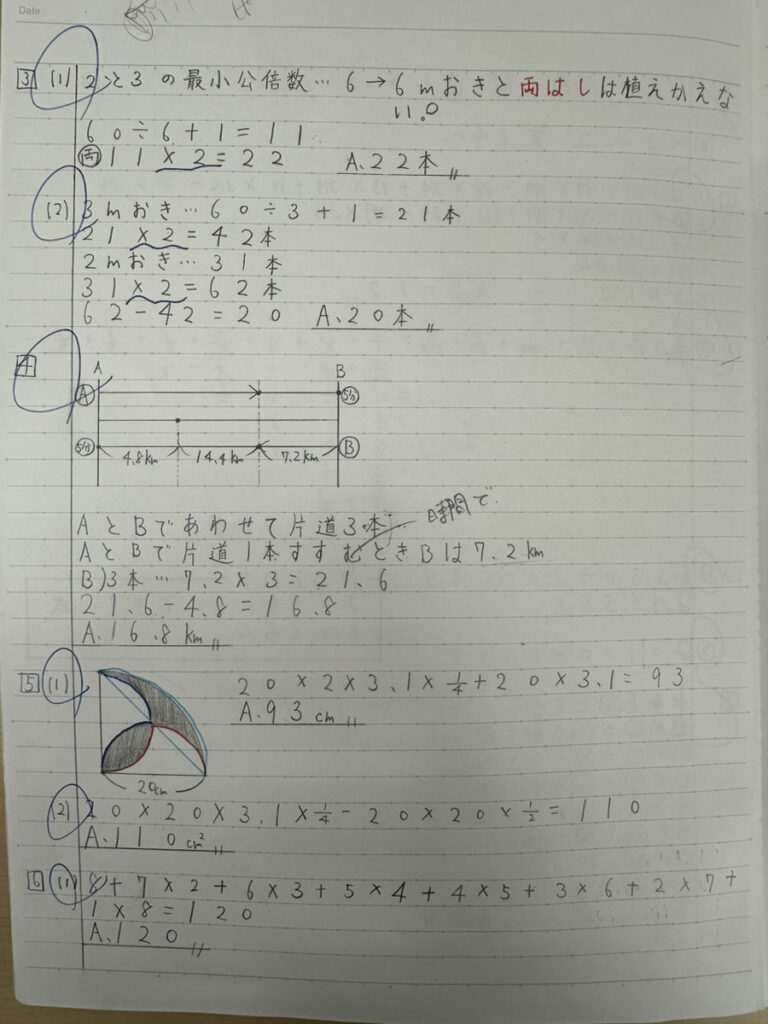 Date
3 (1) 2と3の最小公倍数…6→6mおきと両はしは植えかえな
い。
60÷6+1=11
両 11×2=22 A.22本
(2) 3mおき…60÷3+1=21本
21×2=42本
2mおき…31本
31×2=62本
62-42=20 A.20本
4
A B
A
4.8km 14.4km 7.2km B
AとBであわせて片道3本
時間で
AとBで片道1本すすむときBは7.2km
B)3本…7.2×3=21.6
21.6-4.8=16.8
A.16.8km
5 (1) 20×2×3.1×1/4+20×3.1=93
A.93cm
20cm
(2) 20×20×3.1×1/4-20×20×1/2=110
A.110cm²
6 (1) 8+7×2+6×3+5×4+4×5+3×6+2×7+
1×8=120
A.120